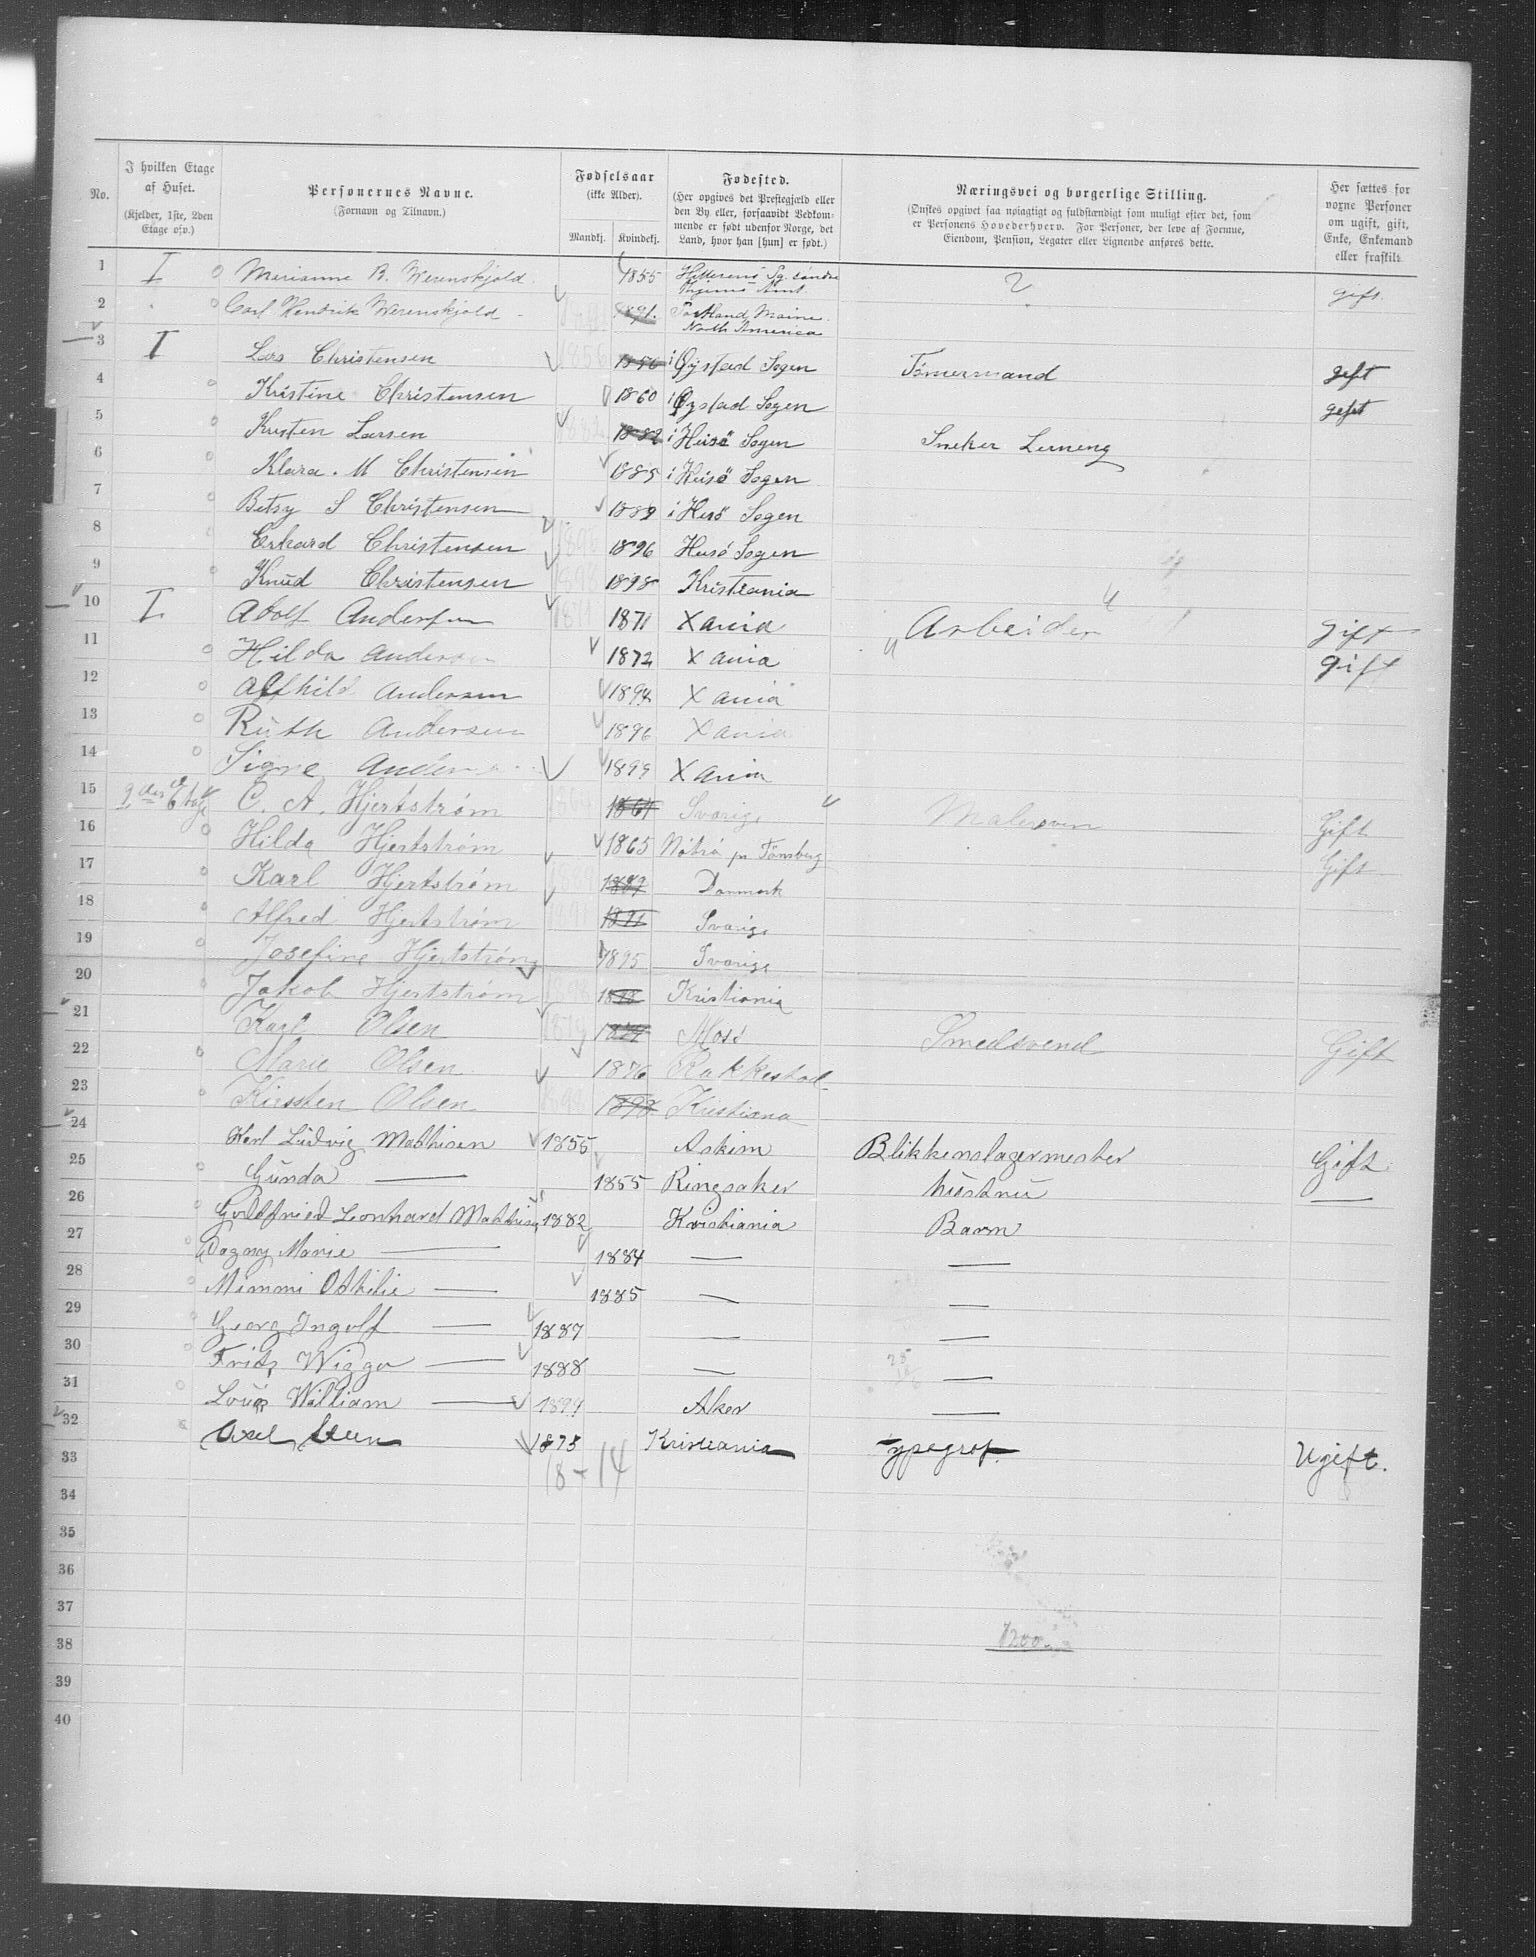 No.
I hvilken Etage af Huset.
(Kjelder, 1ste, 2den Etage osv.)
Personernes Navne.
(Fornavn og Tilnavn.)
Fødselsaar
(ikke Alder).
Mandkj. Kvindekj.
Fødested.
(Her opgives det Prestegjæld eller
den By eller, forsaavidt Vedkom-
mende er født udenfor Norge, det
Land, hvor han [hun] er født.)
Næringsvei og borgerlige Stilling.
(Ønskes opgivet saa nøiagtigt og fuldstændigt som muligt efter det, som
er Personens Hovederhverv. For Personer, der leve af Formue,
Eiendom, Pension, Legater eller Lignende anføres dette.
Her sættes for
voxne Personer
om ugift, gift,
Enke, Enkemand
eller fraskilt.
1 I Marianne B. Werenskjold 1855 gift.
2 Carl Hendrik Werenskjold 1891. Portland, Maine. North America
3 I Lars Christensen 1856 1856 i Øystad Sogen Tømermand geft
4 Kristine Christensen 1860 i Øystad Sogen geft
5 Kristen Larsen 1882 1882 i Heisö Sogen Sneker Lerneng
6 Klara. M Christensen 1885 i Heisö Sogen
7 Betsy S Christensen 1889 i Hesö Sogen
8 Erhard Christensen 1896 1896 Heisö Sogen
9 Knud Christensen 1898 1898 Kristeania
10 I Adolf Andersen 1871 1871 Xania Arbeider gift
11 Hilda Andersen 1872 Xania gift
12 Alfhild Andersen 1894 Xania
13 Ruth Andersen 1896 Xania
14 Signe Andersen 1899 Xania
15 C. A. Hjertstrøm 1864 Sverige Malersven Gift
16 Hilda Hjertstrøm 1865 Nøtrø pr Tønsberg Gift
17 Karl Hjertstrøm 1889 Danmark
18 Alfred Hjertstrøm 1891 1891 Sverige
19 Josefine Hjertstrøm 1895 Sverige
20 Jakob Hjertstrøm 1898 Kristiania
21 Karl Olsen Moss Smedsvend Gift
22 Marie Olsen 1876 Rakkestad
23 Kirsten Olsen 1898 Kristiana
24 Karl Ludvig Mathisen 1855 Askim Blikkenslagermester Gift
25 Gunda — 1855 Ringsaker hustru —
26 Gottfried Leonhard Mathisen 1882 Kristiania Barn
27 Dagny Marie — 1884 — —
28 Mimmi Othilie — 1885 — —
29 Georg Ingolf — 1887 — —
30 Fritz Wiggo — 1888 — —
31 Louis William — 1899 Aker —
32 Axel Steen 1875 Kristiania typograf. Ugift.
33 18 - 14
34
35
36
37
38 1200
39
40